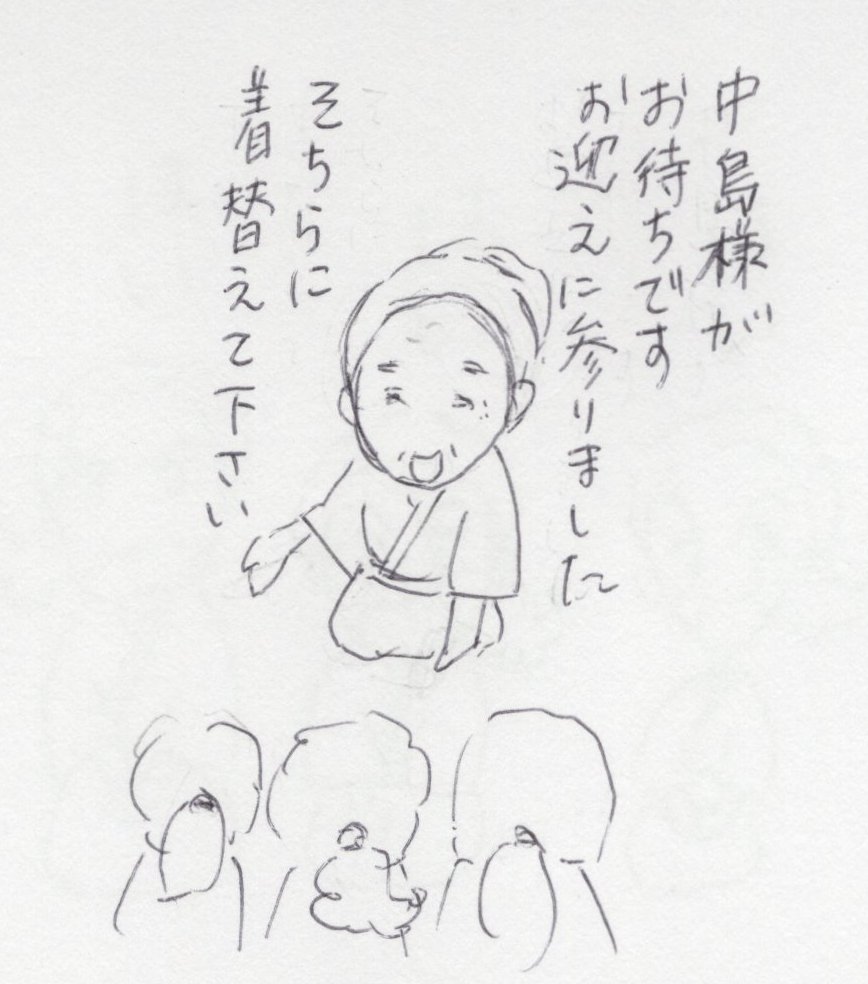 中島様が
お待ちです
お迎えに参りました
そちらに
着替えて下さい